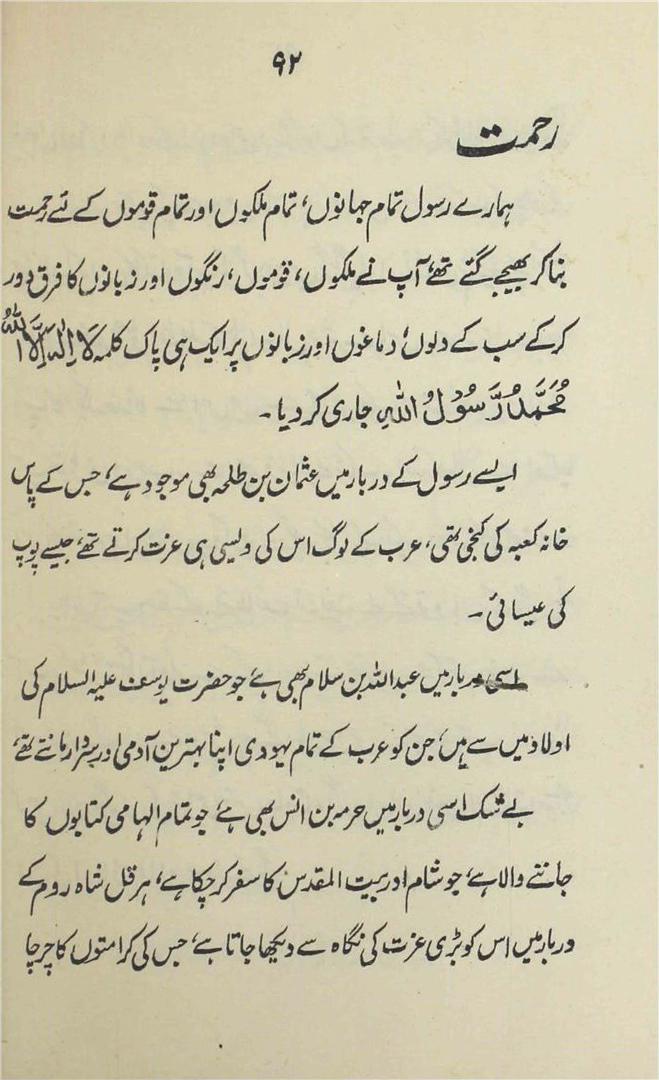 ۹۲
رحمت
ہمارے رسول تمام جہانوں، تمام ملکوں اور تمام قوموں کے لئے رحمت
بنا کر بھیجے گئے تھے، آپ نے ملکوں، قوموں، رنگوں اور زبانوں کا فرق دور
کر کے سب کے دلوں، دماغوں اور زبانوں پر ایک ہی پاک کلمہ لَا اِلٰہَ اِلَّا اللہُ
مُحَمَّدُ رَّسُوْلُ اللہِ جاری کر دیا۔
ایسے رسول کے دربار میں عثمان بن طلحہ بھی موجود ہے، جس کے پاس
خانہ کعبہ کی کنجی تھی، عرب کے لوگ اس کی ویسی ہی عزت کرتے تھے، جیسے پوپ
کی عیسائی۔
اسی دربار میں عبداللہ بن سلام بھی ہے، جو حضرت یوسف علیہ السلام کی
اولاد میں سے ہیں، جن کو عرب کے تمام یہودی اپنا بہترین آدمی اور سردار مانتے تھے
بے شک اسی دربار میں حرمہ بن انس بھی ہے، جو تمام الہامی کتابوں کا
جاننے والا ہے، جو شام اور بیت المقدس کا سفر کر چکا ہے، ہرقل شاہ روم کے
دربار میں اس کو بڑی عزت کی نگاہ سے دیکھا جاتا ہے، جس کی کرامتوں کا چرچا